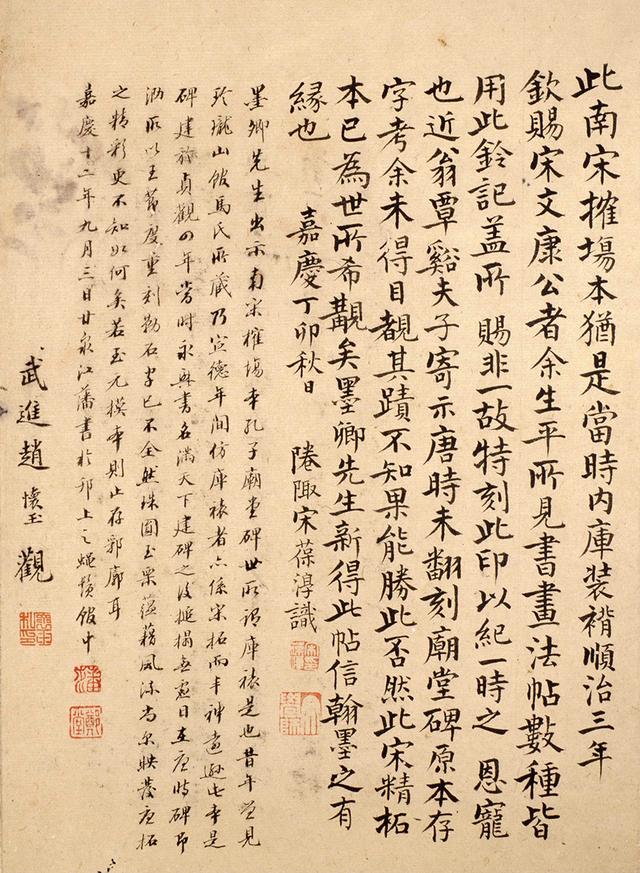 此南宋搉場本猶是當時内庫装褙順治三年
欽賜宋文康公者余生平所見書畫法帖數種皆
用此鈐記盖所賜非一故特刻此印以紀一時之恩寵
也近翁覃谿夫子寄示唐時未翻刻廟堂碑原本存
字考余未得目覩其蹟不知果能勝此否然此宋精柘
本已為世所希覯矣墨卿先生新得此帖信翰墨之有
緣也 嘉慶丁卯秋日 宋葆淳識
墨卿先生出示南宋搉場本孔子廟堂碑世所謂庫裱是也昔年曾見
玲瓏山館馬氏所藏乃宣德年間仿庫裱者亦係宋拓而丰神遠遜此本是
碑建於貞觀四年當時永興書名滿天下建碑之後搥搨無虛日唐時碑即
泐所以王節度重刻勒石字已不全然珠圓玉栗蘊藉風流尚尔映發唐拓
之精彩更不知如何矣若至元摸本則止存郭廓耳
嘉慶十二年九月三日甘泉江藩書於邗上之蠅鬚館中
武進趙懷玉觀
藩
鄭堂